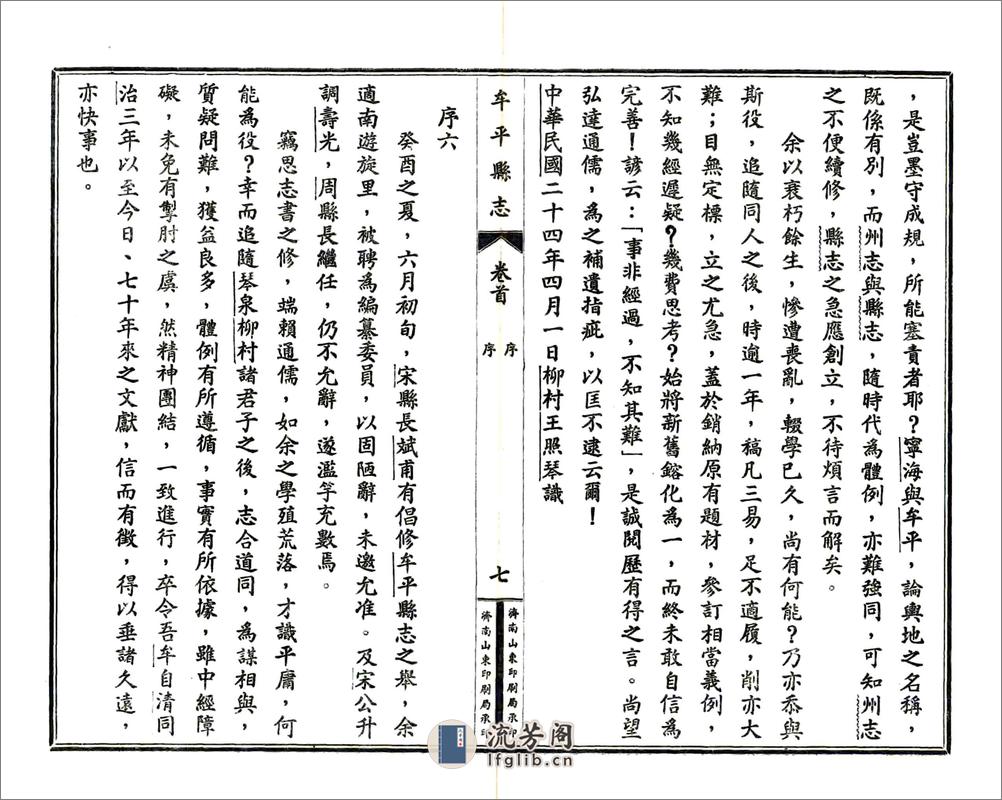 ，是豈墨守成規，所能塞責者耶？寧海與牟平，論輿地之名稱，
既係有別，而州志與縣志，隨時代為體例，亦難強同，可知州志
之不便續修，縣志之急應創立，不待煩言而解矣。
余以衰朽餘生，慘遭喪亂，輟學已久，尚有何能？乃亦忝與
斯役，追隨同人之後，時逾一年，稿凡三易，足不適履，削亦大
難；目無定標，立之尤急，蓋於銷納原有題材，參訂相當義例，
不知幾經遲疑？幾費思考？始將新舊鎔化為一，而終未敢自信為
完善！諺云：「事非經過，不知其難」，是誠閱歷有得之言。尚望
弘達通儒，為之補遺指疵，以匡不逮云爾！
中華民國二十四年四月一日柳村王照琴識
牟平縣志
卷首
序
序
七
濟南山東印刷局承印
濟南山東印刷局承印
序六
癸酉之夏，六月初旬，宋縣長斌甫有倡修牟平縣志之舉，余
適南遊旋里，被聘為編纂委員，以固陋辭，未邀允准。及宋公升
調壽光，周縣長繼任，仍不允辭，遂濫竽充數焉。
竊思志書之修，端賴通儒，如余之學殖荒落，才識平庸，何
能為役？幸而追隨琴泉柳村諸君子之後，志合道同，為謀相與，
質疑問難，獲益良多，體例有所遵循，事實有所依據，雖中經障
礙，未免有掣肘之虞，然精神團結，一致進行，卒令吾牟自清同
治三年以至今日、七十年來之文獻，信而有徵，得以垂諸久遠，
亦快事也。
流芳阁
lfglib.cn